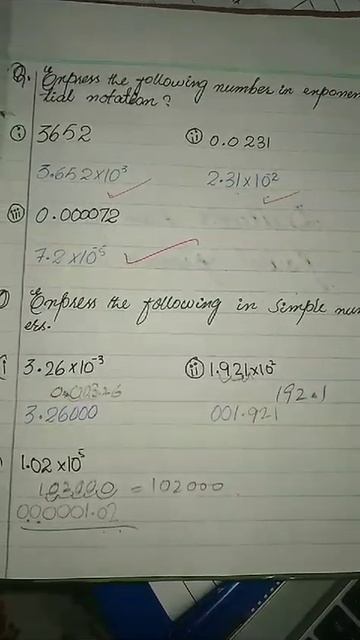 Q. Express the following number in exponen
tial notation?
(i) 3652 (ii) 0.0231
3.652×10³ 2.31×10⁻²
(iii) 0.000072
7.2×10⁻⁵
Express the following in simple num
ers.
i 3.26×10⁻³ (ii) 1.921×10²
0.00326 192.1
3.26000 001.921
1.02×10⁵
102000 = 102000
000001.02